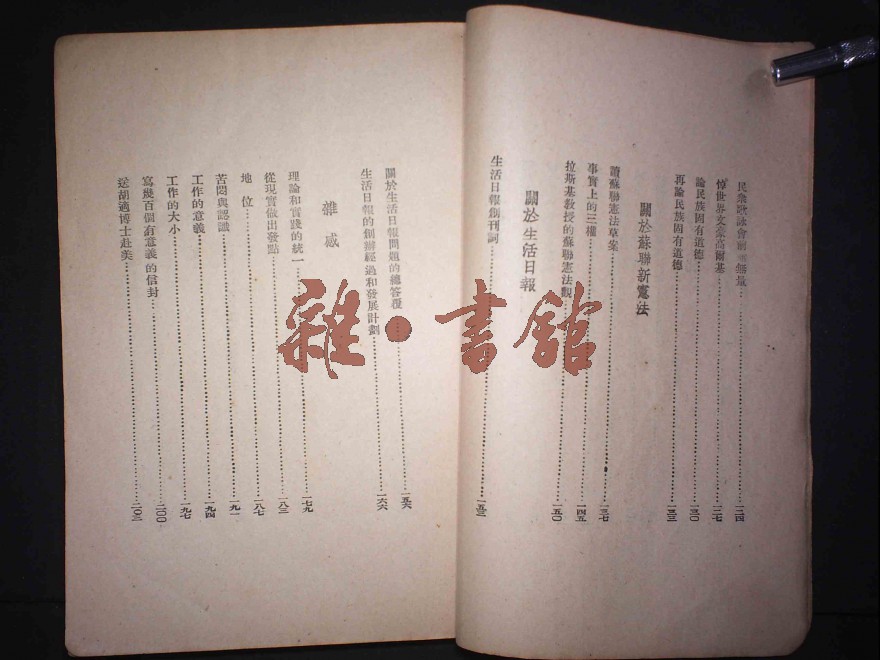 民衆歌詠會前途無量……一二四
悼世界文豪高爾基……一二七
論民族固有道德……一三〇
再論民族固有道德……一三三
關於蘇聯新憲法
讀蘇聯憲法草案……一三七
事實上的三權……一四五
拉斯基教授的蘇聯憲法觀……一五〇
關於生活日報
生活日報創刊詞……一五三
關於生活日報問題的總答覆……一五六
生活日報的創辦經過和發展計劃……一六六
雜感
理論和實踐的統一……一七九
從現實做出發點……一八三
地位……一八七
苦悶與認識……一九一
工作的意義……一九四
工作的大小……一九七
寫幾百個有意義的信封……二〇〇
送胡適博士赴美……二〇三
雜·書館